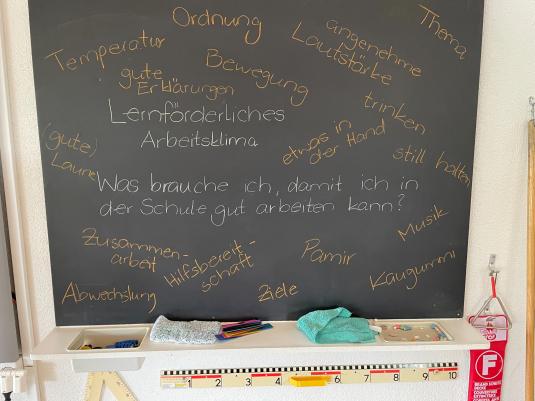 Ordnung
Thema
angenehme
Lautstärke
Temperatur
Bewegung
gute
Erklärungen
Lernförderliches
Arbeitsklima
trinken
etwas in
der Hand
still halten
(gute)
Laune
Was brauche ich, damit ich in
der Schule gut arbeiten kann?
Musik
Zusammen-
arbeit
Hilfsbereit-
schaft
Pamir
Kaugummi
Abwechslung
Ziele
1 2 3 4 6 7 8 9 10
F